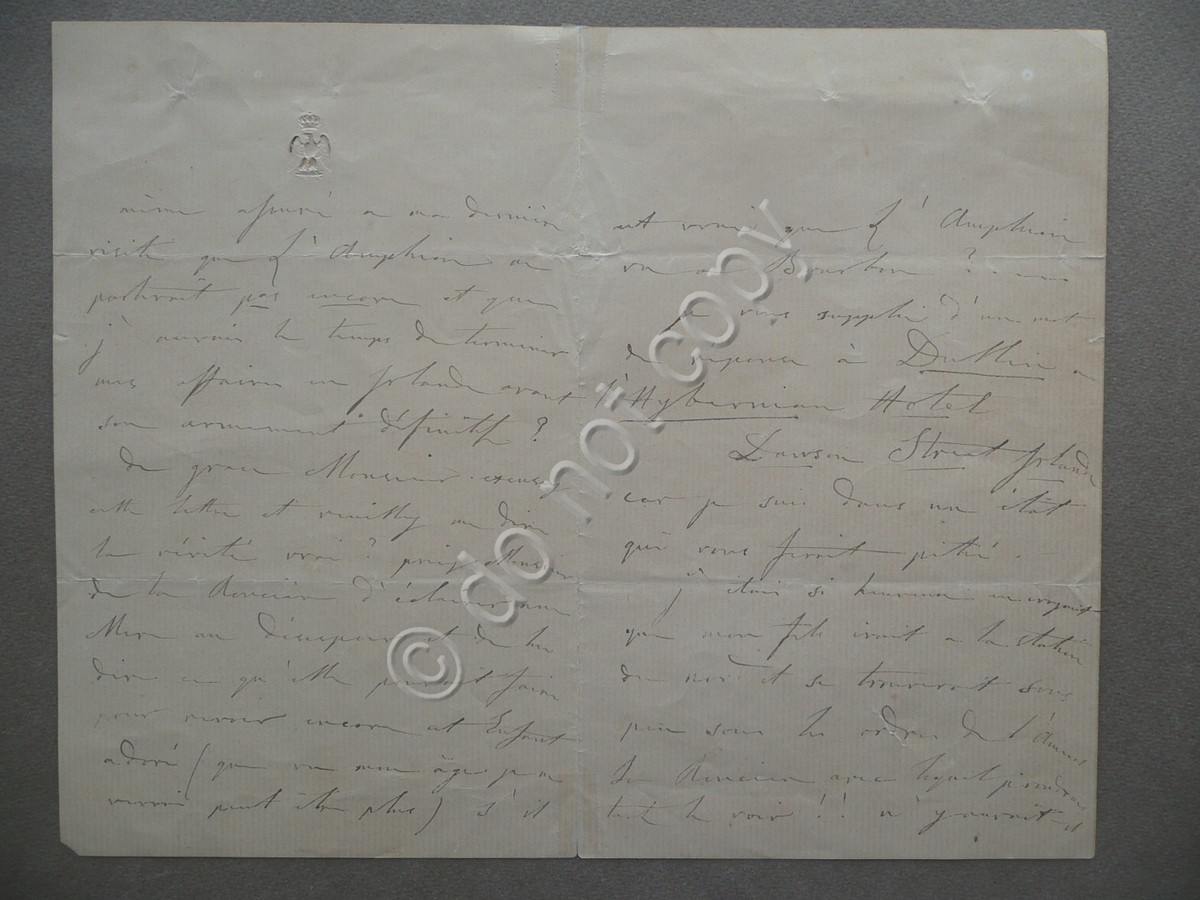 même assuré a ma dernière
visite que L'Amphion ne
partirait pas encore et que
j'aurais le temps de terminer
mes affaires en Irlande avant
son armement définitif ?
de grace Monsieur excusez
cette lettre et veuillez me dire
la vérité vraie ? priez Monsieur
de la Roncière d'éclairer une
Mere au désespoir et de lui
dire ce qu'elle pourrait faire
pour revoir encore cet Enfant
adoré (que vu mon âge je ne
verrai peut être plus) s'il
est vrai que L'Amphion
va a Bourbon ? ...
je vous supplie d'un mot
de réponse à Dublin a
l'Hybernian Hotel
Dawson Street Irlande
car je suis dans un état
qui vous ferait pitié.
j'étais si heureuse en croyant
que mon fils irait a la station
du nord et se trouverait sous
peu sous les ordres de l'Amiral
La Roncière avec lequel
tant le voir !! n'y aurait-il
© do not copy